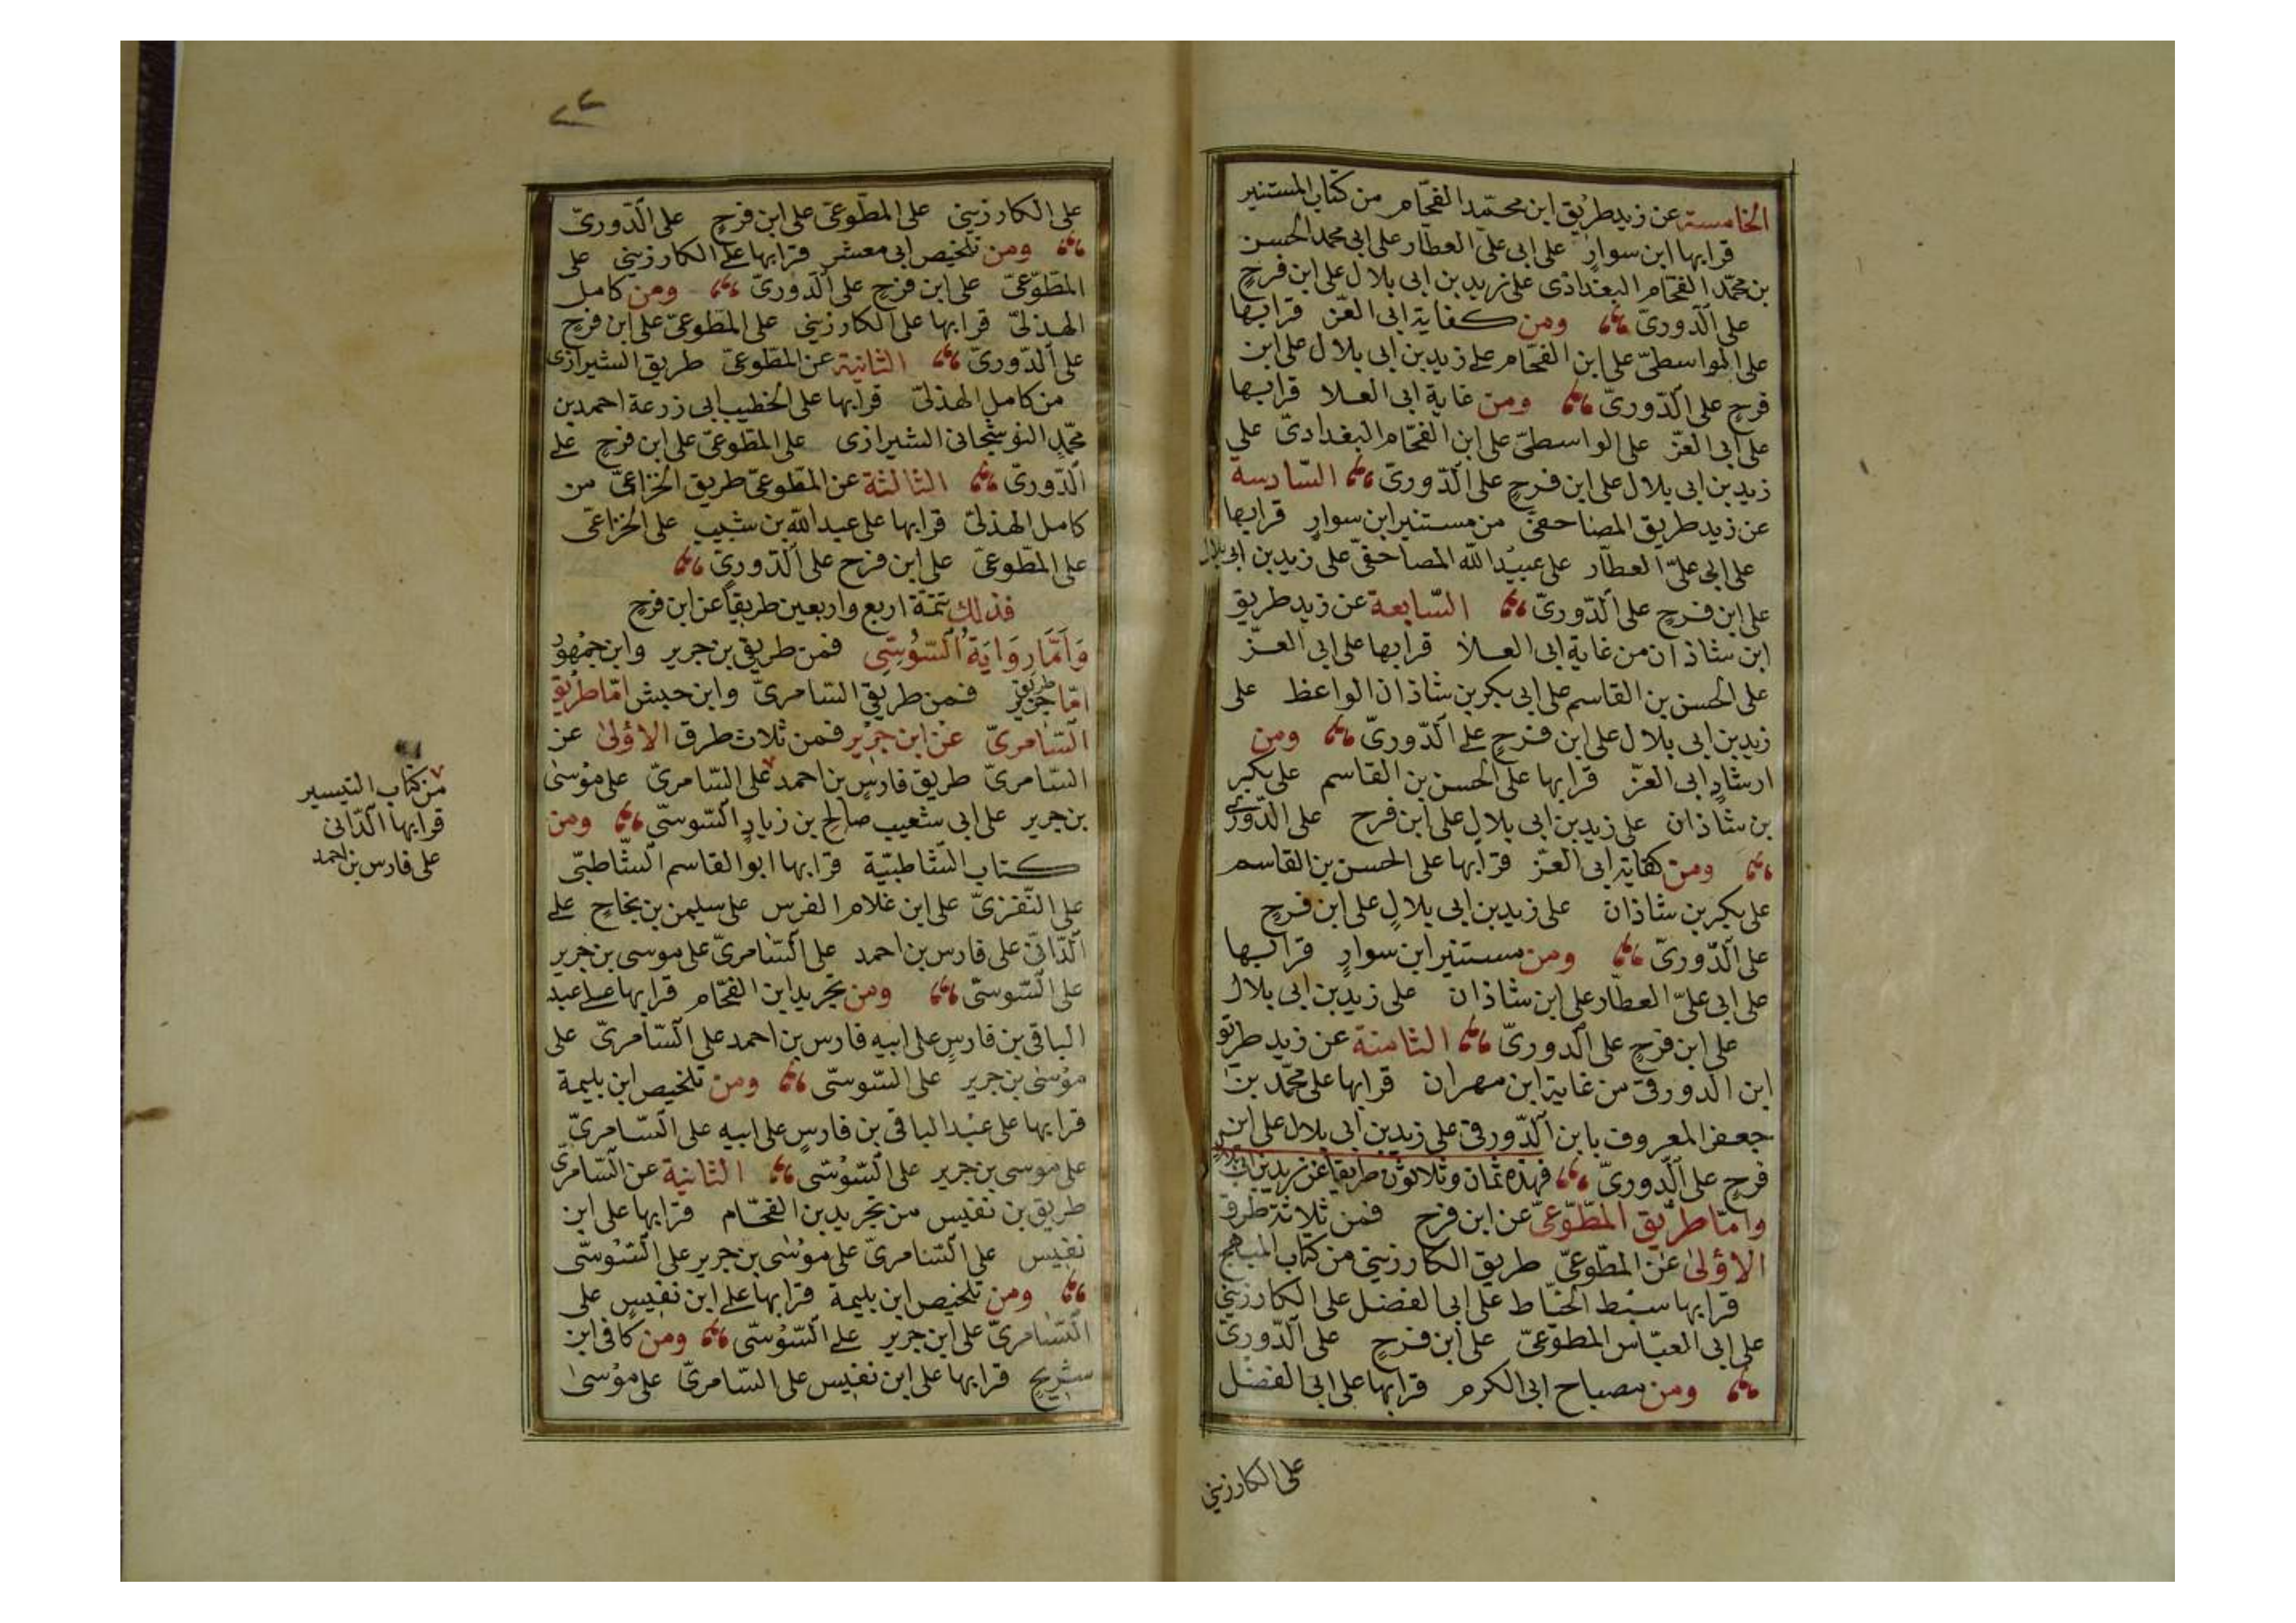 الخامسة عن زيد طريق ابن محمّد الفحّام من كتاب المستنير
قرابها ابن سوار على ابى على العطار على ابى محمد الحسن
بن محمّد الفحّام البغدادى على زيد بن ابى بلال على ابن فرح
على الدّورىّ ومن كفاية ابى العزّ قرابها
على الواسطىّ على ابن الفحّام على زيد بن ابى بلال على ابن
فرح على الدّورىّ ومن غاية ابى العلا قرابها
على ابى العزّ على الواسطىّ على ابن الفحّام البغدادىّ على
زيد بن ابى بلال على ابن فرح على الدّورىّ السّادسة
عن زيد طريق المصاحفىّ من مستنير ابن سوار قرابها
على ابى علىّ العطّار على عبيد الله المصاحفىّ على زيد بن ابى بلال
على ابن فرح على الدّورىّ السّابعة عن زيد طريق
ابن شاذان من غاية ابى العلا قرابها على ابى العزّ
على الحسن بن القاسم على ابى بكر بن شاذان الواعظ على
زيد بن ابى بلال على ابن فرح على الدّورىّ ومن
ارشاد ابى العزّ قرابها على الحسن بن القاسم على بكر
بن شاذان على زيد بن ابى بلال على ابن فرح على الدّورىّ
ومن كفاية ابى العزّ قرابها على الحسن بن القاسم
على بكر بن شاذان على زيد بن ابى بلال على ابن فرح
على الدّورىّ ومن مستنير ابن سوار قرابها
على ابى علىّ العطّار على ابن شاذان على زيد بن ابى بلال
على ابن فرح على الدورىّ الثامنة عن زيد طريق
ابن الدورقى من غاية ابن مهران قرابها على محمّد بن
جعفر المعروف بابن الدّورقى على زيد بن ابى بلال على ابن
فرح على الدّورىّ فهذه ثمان وثلاثون طريقا عن زيد بن ابى بلال
وامّا طريق المطّوّعىّ عن ابن فرح فمن ثلاثة طرق
الاؤلى عن المطّوعىّ طريق الكارزينى من كتاب المبهج
قرابها سبط الخيّاط على ابى الفضل على الكارزينى
على ابى العبّاس المطوعىّ على ابن فرح على الدّورىّ
ومن مصباح ابى الكرم قرابها على ابى الفضل
على الكارزينى
٢٢
على الكارزينى على المطّوعى على ابن فرح على الدّورىّ
ومن تلخيص ابى معشر قرابها على الكارزينى على
المطّوّعىّ على ابن فرح على الدّورىّ ومن كامل
الهذلىّ قرابها على الكارزينى على المطّوعىّ على ابن فرح
على الدّورىّ الثانية عن المطّوعىّ طريق الشيرازى
من كامل الهذلىّ قرابها على الخطيب ابى زرعة احمد بن
محمّد النوشجانى الشيرازى على المطّوعىّ على ابن فرح على
الدّورىّ الثالثة عن المطّوعىّ طريق الخزاعىّ من
كامل الهذلىّ قرابها على عبد الله بن شبيب على الخزاعىّ
على المطّوعىّ على ابن فرح على الدّورىّ
فذلك تتمّة اربع واربعين طريقاً عن ابن فرح
وَاَمَّا رِوَايَةُ السّوُسِى فمن طريق بن جرير وابن جمْهوُر
امّا طريق جرير فمن طريق السّامرىّ وابن حبش امّا طريق
السّامرىّ عن ابن جرير فمن ثلاث طرق الاؤلى عن
السّامرىّ طريق فارس بن احمد على السّامرىّ على موْسى
بن جرير على ابى شعيب صالح بن زياد السّوسّى ومن
كتاب الشّاطبيّة قرابها ابو القاسم الشّاطبىّ
على النّفزىّ على ابن غلام الفرس على سليمن بن نجاح على
الدّانىّ على فارس بن احمد على السّامرىّ على موسى بن جرير
على السّوسىّ ومن تجريد ابن الفحّام قرابها على عبد
الباقى بن فارس على ابيه فارس بن احمد على السّامرىّ على
موْسى بن جرير على السّوسىّ ومن تلخيص ابن بليمة
قرابها على عبْد الباقى بن فارس على ابيه على السّامرىّ
على موسى بن جرير على السّوْسّى الثانية عن السّامرىّ
طريق بن نفيس من تجريد بن الفحّام قرابها على ابن
نفيس على السّامرىّ على موْسى بن جرير على السّوْسّى
ومن تلخيص ابن بليمة قرابها على ابن نفيس على
السّامرىّ على ابن جرير على السّوْسّى ومن كافى ابن
شريح قرابها على ابن نفيس على السّامرىّ على موْسى
من كتاب التيسير
قرابها الدّانى
على فارس بن احمد